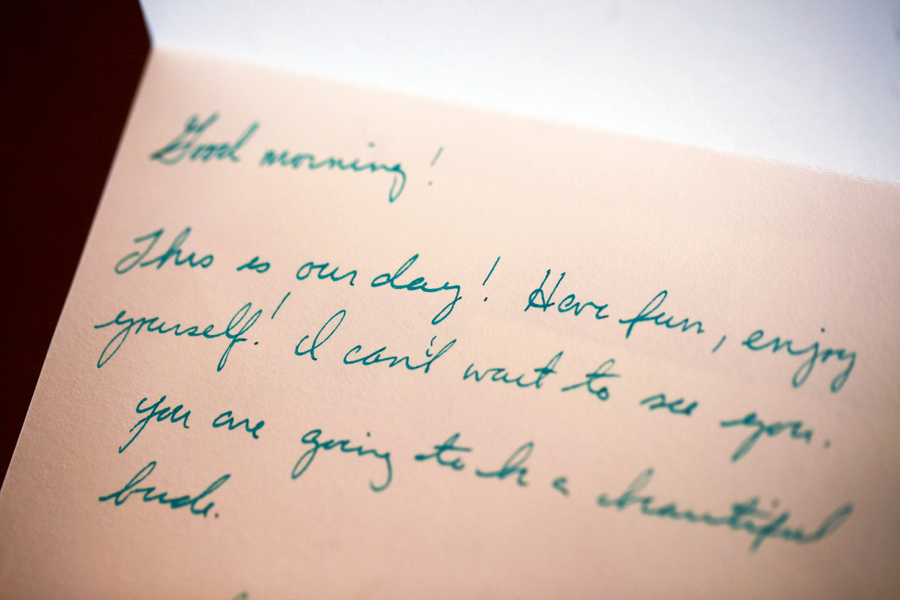 Good morning!
This is our day! Have fun, enjoy
yourself! I can't wait to see you.
You are going to be a beautiful
bride.